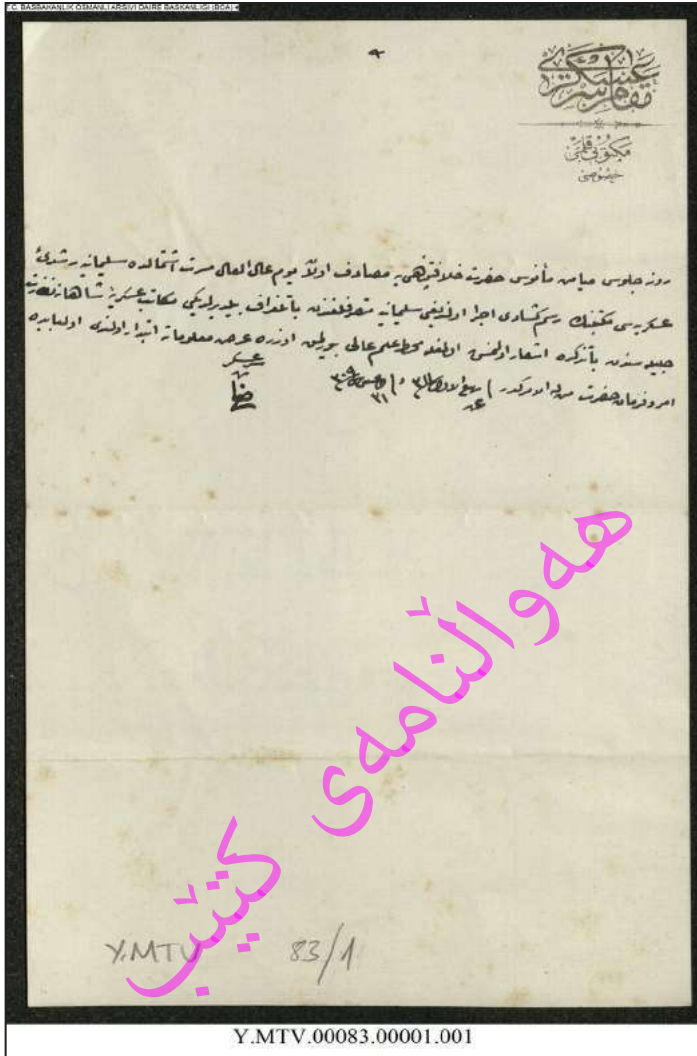 T.C. BASBAKANLIK OSMANLI ARSIVI DAIRE BASKANLIGI (BOA)
مقام سرعسكری
مكتوبی قلمی
خصوصی
روز جلوس ميامن مأنوس حضرت خلافتپناهی يه مصادف اولان يوم عالی العال مسرت اشتمالده سليمانيه رشدیهٔ
عسكريه سی مكتبنك رسم كشادی اجرا اولندیغی سليمانيه متصرفلغندن با تلغراف بيلديرلديكی مكاتب عسكريهٔ شاهانه نظارت
جليله سندن با تذكره اشعار اولنمش اولمغله محاط علم عالی بيورلمق اوزره عرض معلوماته ابتدار اولندی اولبابده
امر و فرمان حضرت من له الامركدر
سرعسكر
رضا
هەواڵنامەی کتێب
Y.MTV 83/1
Y.MTV.00083.00001.001